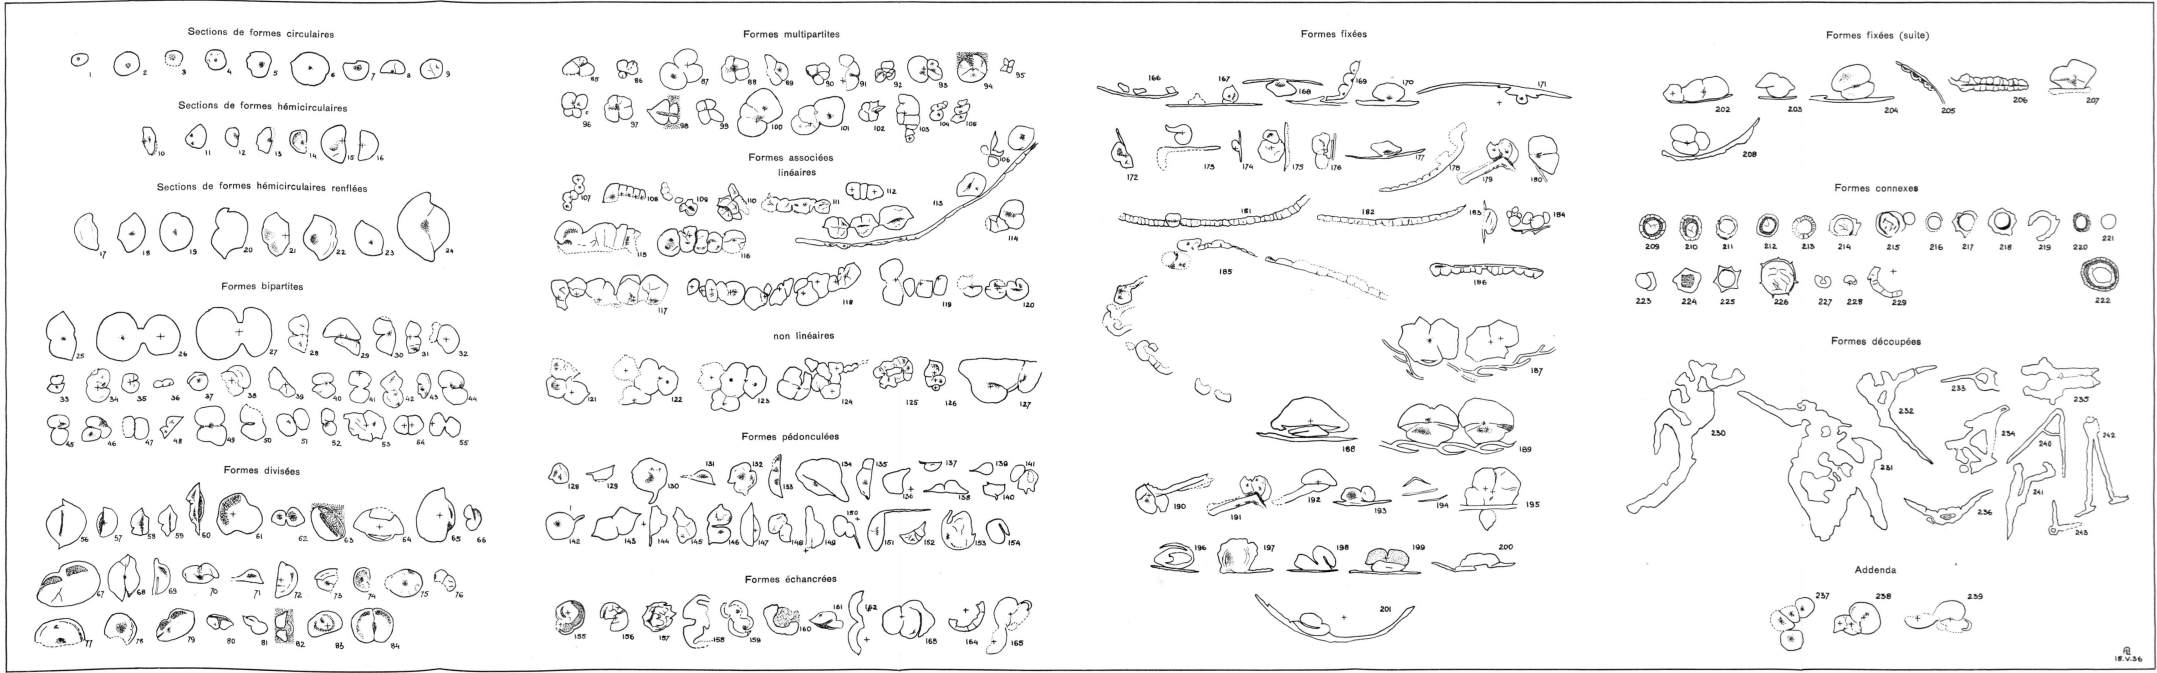 Sections de formes circulaires
1 2 3 4 5 6 7 8 9
Sections de formes hémicirculaires
10 11 12 13 14 15 16
Sections de formes hémicirculaires renflées
17 18 19 20 21 22 23 24
Formes bipartites
25 26 27 28 29 30 31 32
33 34 35 36 37 38 39 40 41 42 43 44
45 46 47 48 49 50 51 52 53 54 55
Formes divisées
56 57 58 59 60 61 62 63 64 65 66
67 68 69 70 71 72 73 74 75 76
77 78 79 80 81 82 83 84
Formes multipartites
85 86 87 88 89 90 91 92 93 94 95
96 97 98 99 100 101 102 103 104 105
106
Formes associées
linéaires
107 108 109 110 111 112 113
114
115 116
117 118 119 120
non linéaires
121 122 123 124 125 126 127
Formes pédonculées
128 129 130 131 132 133 134 135 136 137 138 139 140 141
142 143 144 145 146 147 148 149 150 151 152 153 154
Formes échancrées
155 156 157 158 159 160 161 162 163 164 165
Formes fixées
166 167 168 169 170 171
172 173 174 175 176 177 178 179 180
181 182 183 184
185 186
187
188 189
190 191 192 193 194 195
196 197 198 199 200
201
Formes fixées (suite)
202 203 204 205 206 207
208
Formes connexes
209 210 211 212 213 214 215 216 217 218 219 220 221
223 224 225 226 227 228 229 222
Formes découpées
230 231 232 233 234 235
236 240 241 242
243
Addenda
237 238 239
18.V.36